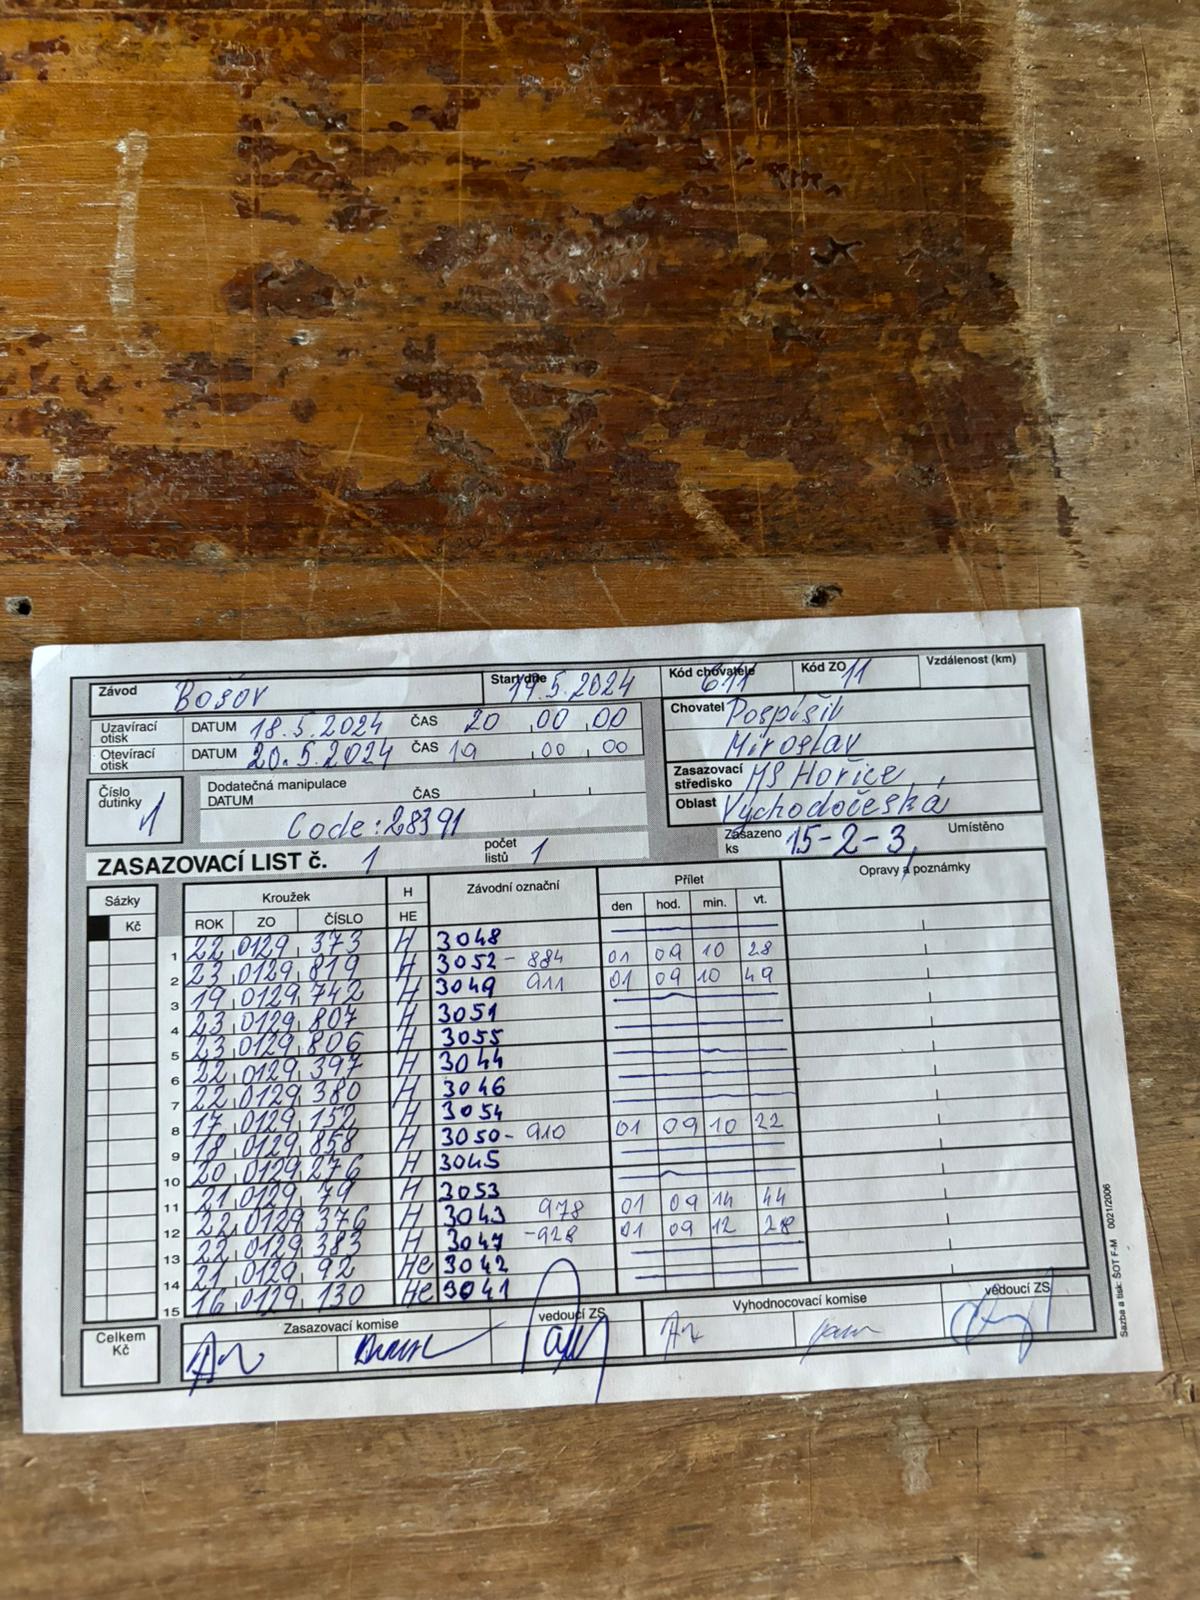 Závod Bošov Start dne 19.5.2024 Kód chovatele 611 Kód ZO 11 Vzdálenost (km)
Uzavírací otisk DATUM 18.5.2024 ČAS 20 00 00
Otevírací otisk DATUM 20.5.2024 ČAS 19 00 00
Chovatel Pospíšil
Miroslav
Zasazovací středisko MS Hořice
Oblast Východočeská
Číslo dutinky 1
Dodatečná manipulace
DATUM ČAS
Code: 28391
Zasazeno ks 15-2-3 Umístěno
ZASAZOVACÍ LIST č. 1 počet listů 1
Sázky Kroužek H Závodní označní Přílet Opravy a poznámky
Kč ROK ZO ČÍSLO HE den hod. min. vt.
1 22 0129 373 H 3048
2 23 0129 819 H 3052 - 884 01 09 10 28
3 19 0129 742 H 3049 911 01 09 10 49
4 23 0129 807 H 3051
5 23 0129 806 H 3055
6 22 0129 397 H 3044
7 22 0129 380 H 3046
8 17 0129 152 H 3054
9 18 0129 858 H 3050 - 910 01 09 10 22
10 20 0129 276 H 3045
11 21 0129 79 H 3053
12 22 0129 376 H 3043 978 01 09 14 44
13 22 0129 383 H 3047 - 928 01 09 12 28
14 21 0129 92 He 3042
15 16 0129 130 He 3041
Celkem Kč Zasazovací komise vedoucí ZS Vyhodnocovací komise vedoucí ZS
Sazba a tisk: ŠOT F-M 0021/2006